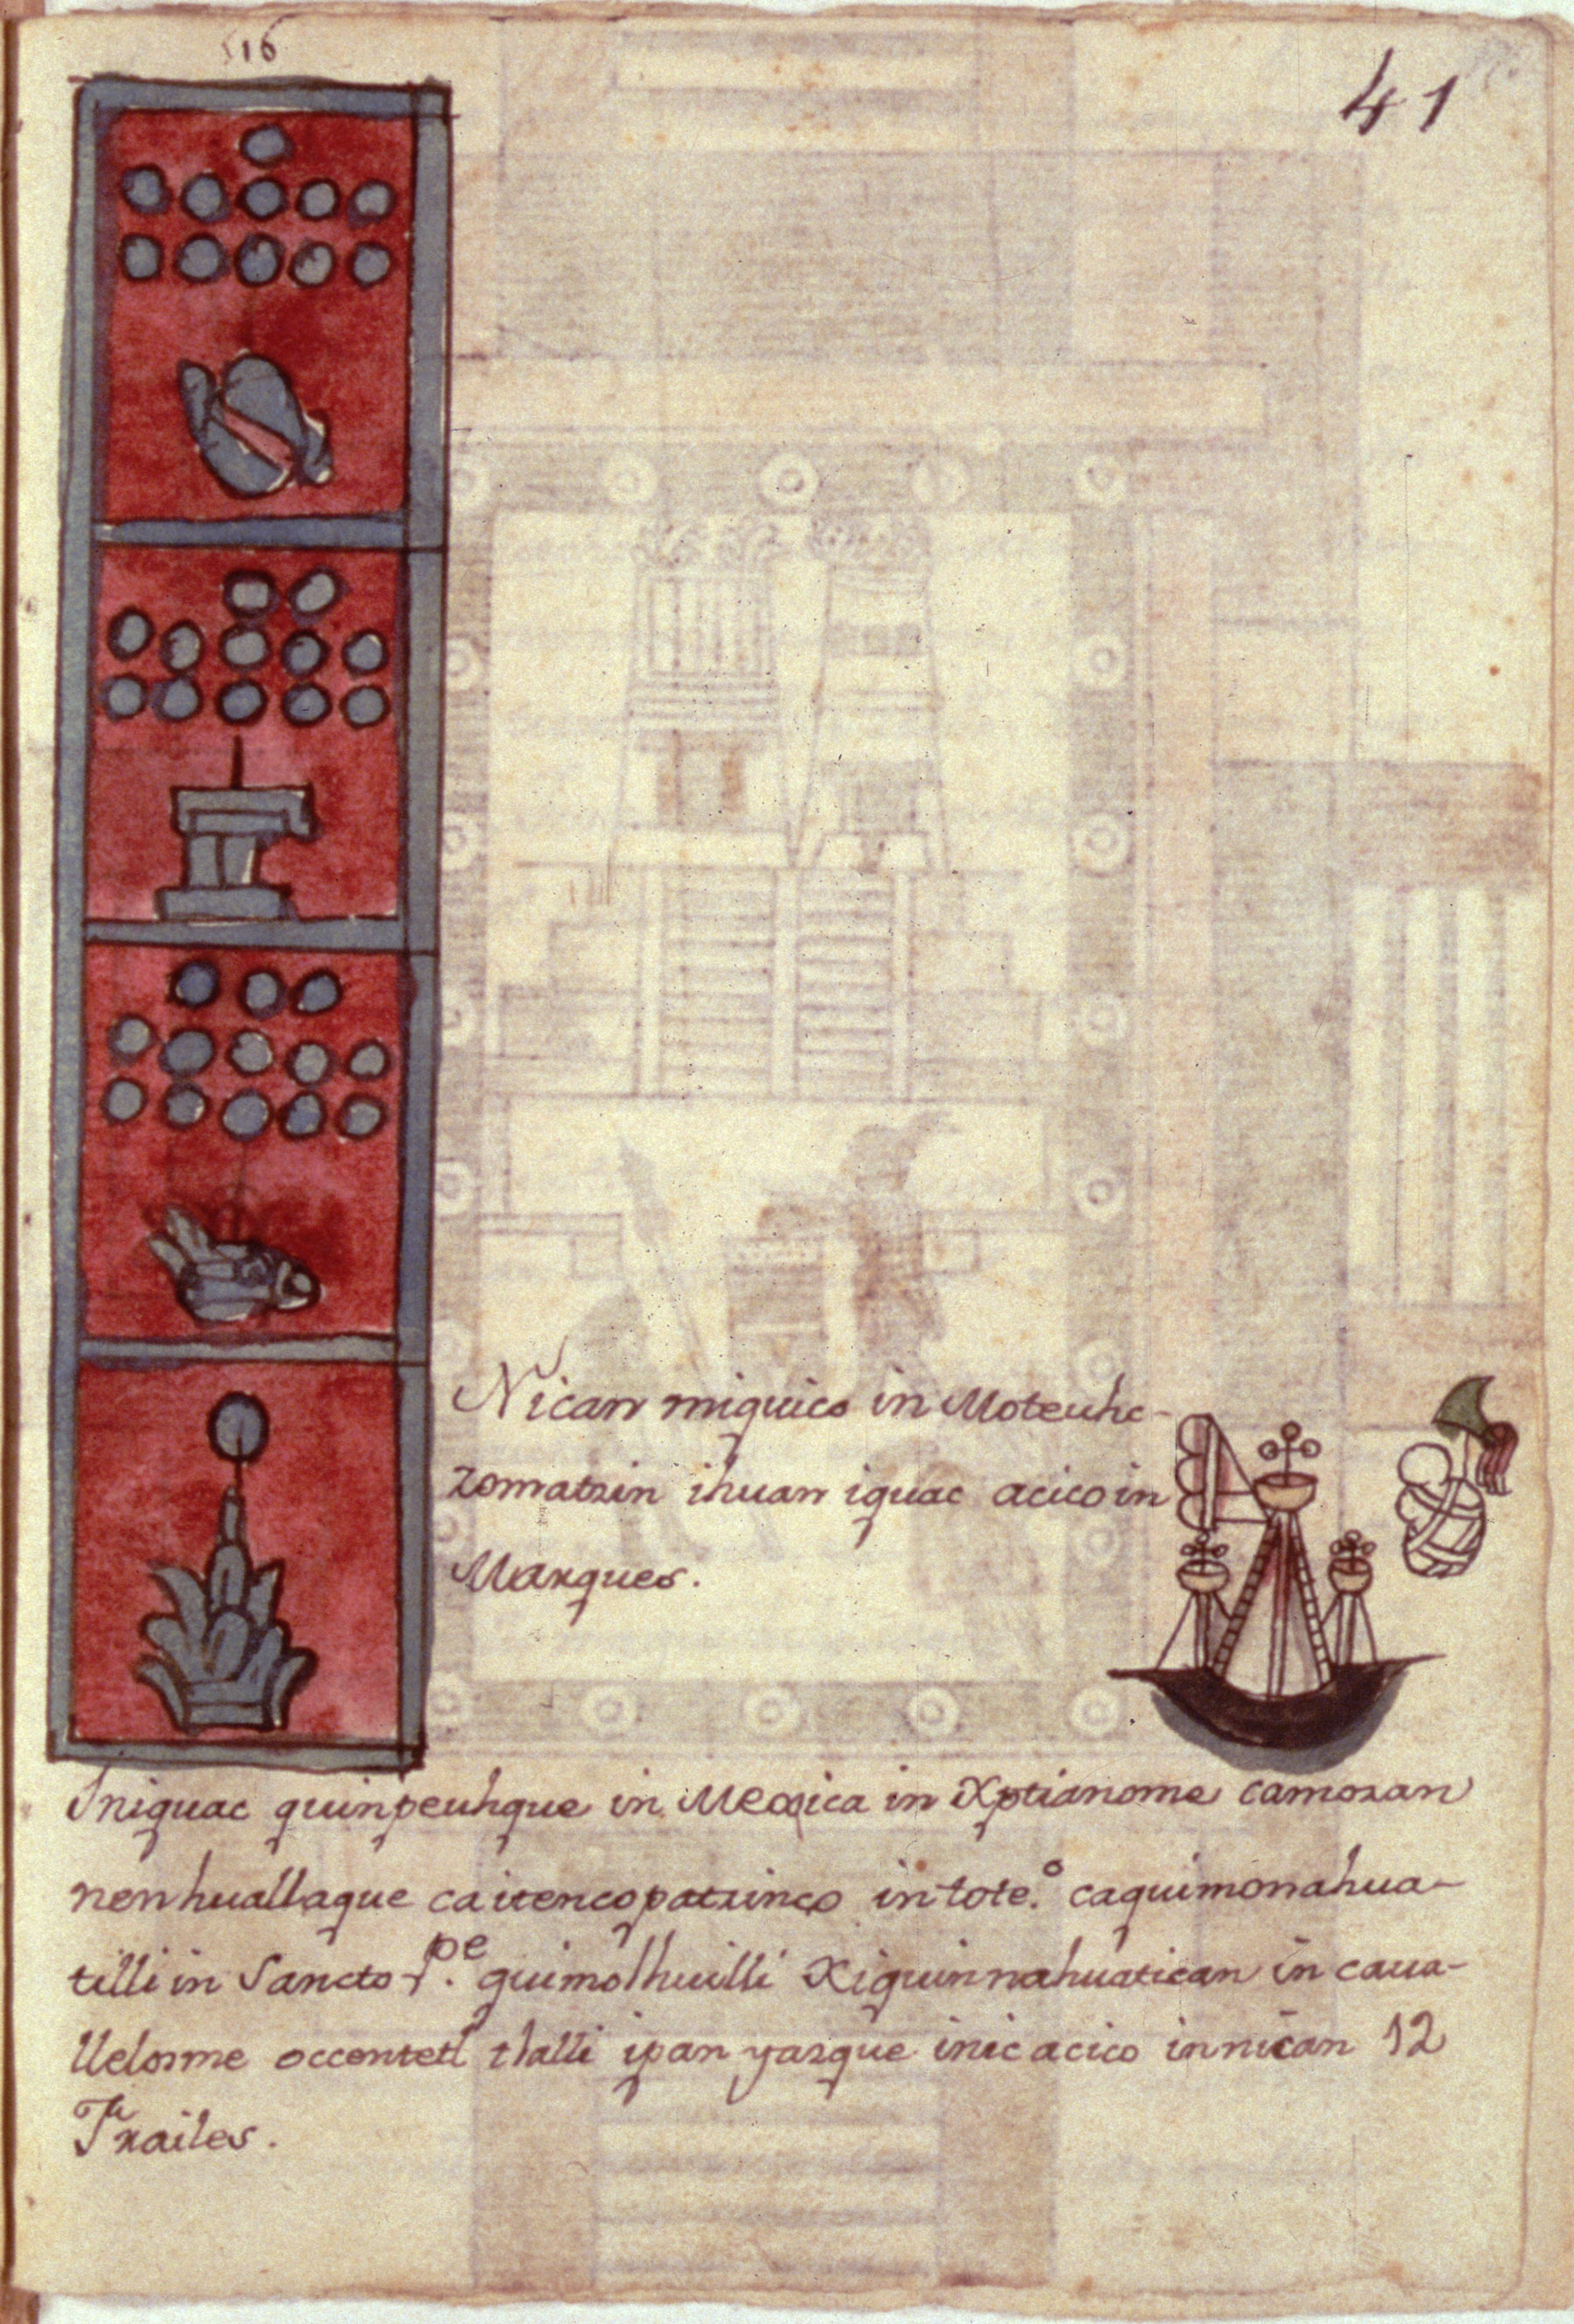 516
41
Nican miquico in Moteuhc-
zomatzin ihuan iquac acico in
Marques.
Iniquac quinpeuhque in Mexica in Xptianome camozan
nenhuallaque ca itencopatzinco in tote.º caquimonahua-
tilli in Sancto P.pe quimolhuilli Xiquinnahuatican in caua-
llelosme occentetl tlalli ipan yazque inic acico in nican 12
Frailes.